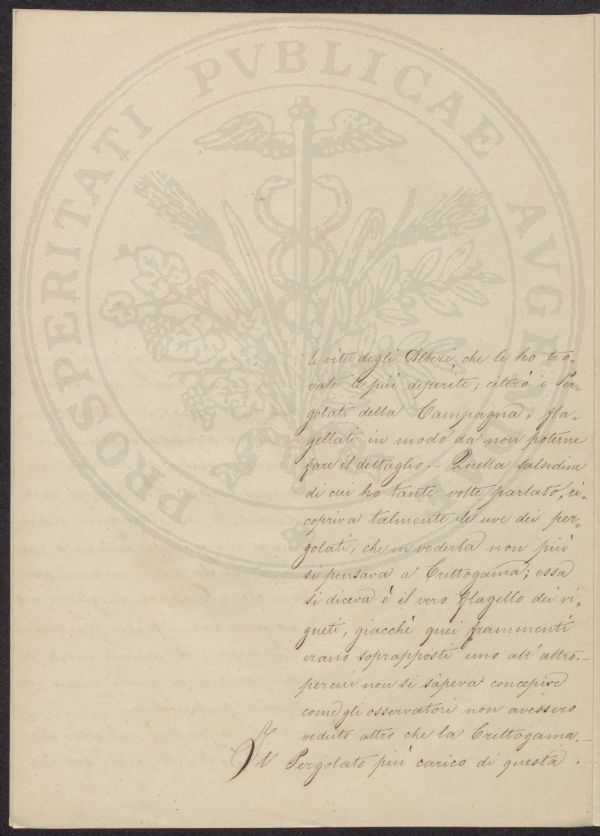 PROSPERITATI PVBLICAE AVGENDAE
le vite degli Alberi, che le ho tro-
vate le più deperite; citerò i Per-
golati della Campagna, fla-
gellati in modo da non poterne
fare il dettaglio. – Quella salsedine
di cui ho tante volte parlato, ri-
copriva talmente le uve dei per-
golati, che in vederla non più
si pensava a Crittogama; essa
si diceva è il vero flagello dei vi-
gneti, giacchè quei frammenti
erano soprapposti uno all'altro. –
percui non si sapeva concepire
come gli osservatori non avessero
veduto altro che la Crittogama. –
Il Pergolato più carico di questa